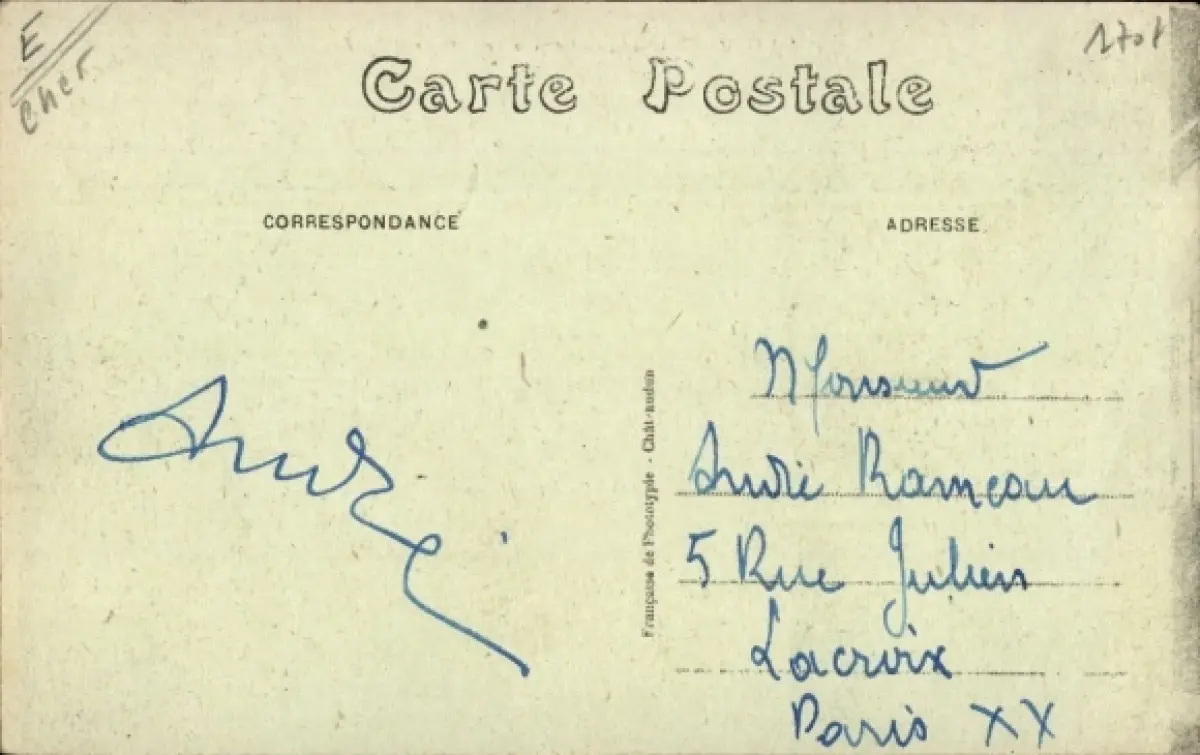 E
Cher
Carte Postale
CORRESPONDANCE
ADRESSE
André
Monsieur
André Rameau
5 Rue Julien
Lacroix
Paris XX
Française de Phototypie - Châteaudun